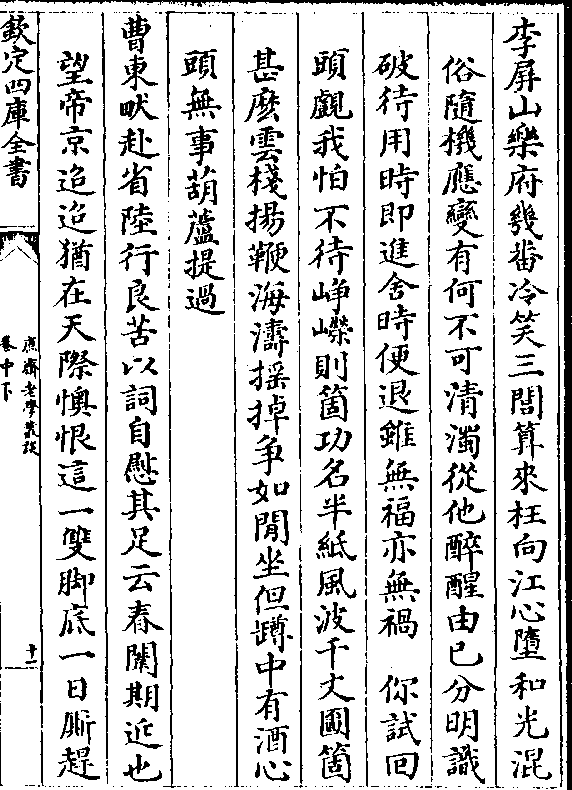 李屏山樂府幾番冷笑三閭算來枉向江心墮和光混
俗隨機應變有何不可清濁從他醉醒由已分明識
破待用時即進舍時便退雖無福亦無禍　你試回
頭覷我怕不待峥嶸則箇功名半紙風波千丈圖箇
甚麽雲棧揚鞭海濤揺掉争如閒坐但罇中有酒心
頭無事葫蘆提過
曹東畎赴省陸行良苦以詞自慰其足云春闈期近也
望帝京迢迢猶在天際懊恨這一雙脚底一日厮趕
欽定四庫全書
庶齋老學叢談
卷中下
十一